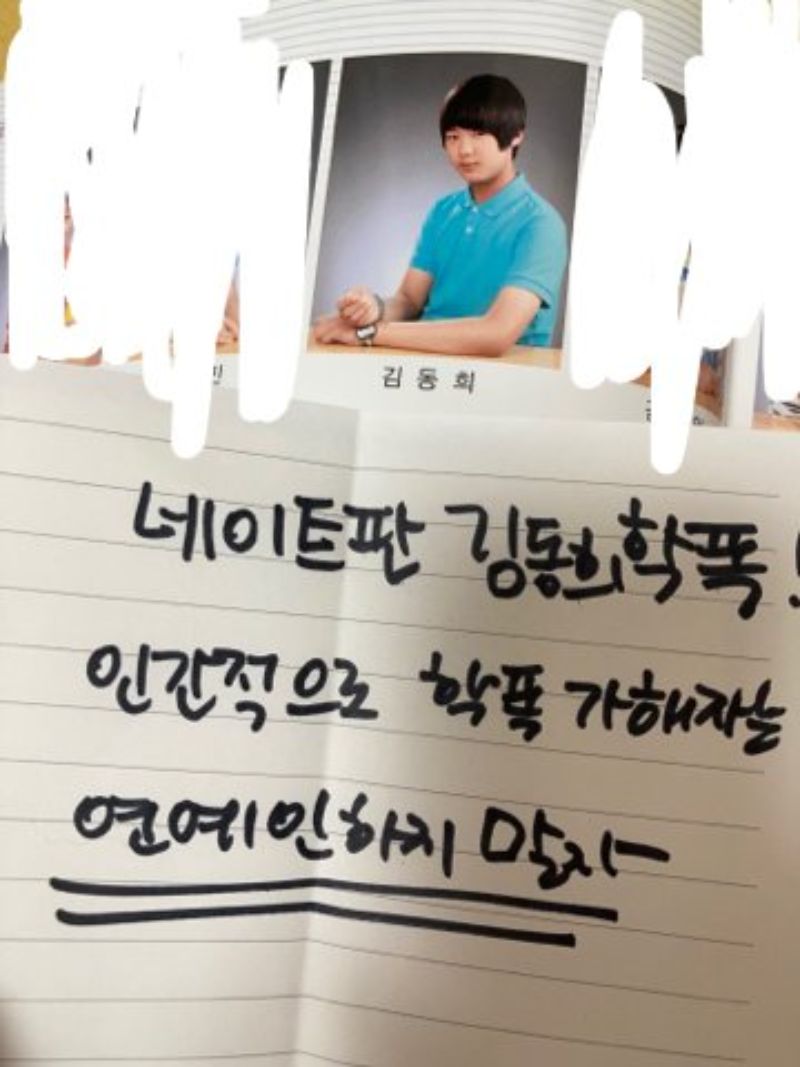 김동희
네이트판 김동희 학폭!
인간적으로 학폭 가해자는
연예인하지 말자-